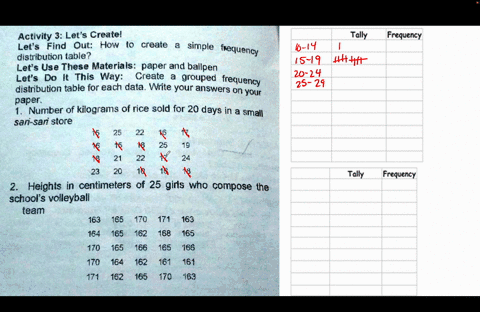 Activity 3: Let's Create!
Let's Find Out: How to create a simple frequency
distribution table?
Let's Use These Materials: paper and ballpen
Let's Do It This Way: Create a grouped frequency
distribution table for each data. Write your answers on your
paper.
1. Number of kilograms of rice sold for 20 days in a small
sari-sari store
25 22
25 19
21 22 24
23 20
2. Heights in centimeters of 25 girls who compose the
school's volleyball
team
163 165 170 171 163
164 165 162 168 165
170 165 166 165 166
170 164 162 161 161
171 162 165 170 163
Tally Frequency
10-14
15-19
20-24
25-29
Tally Frequency